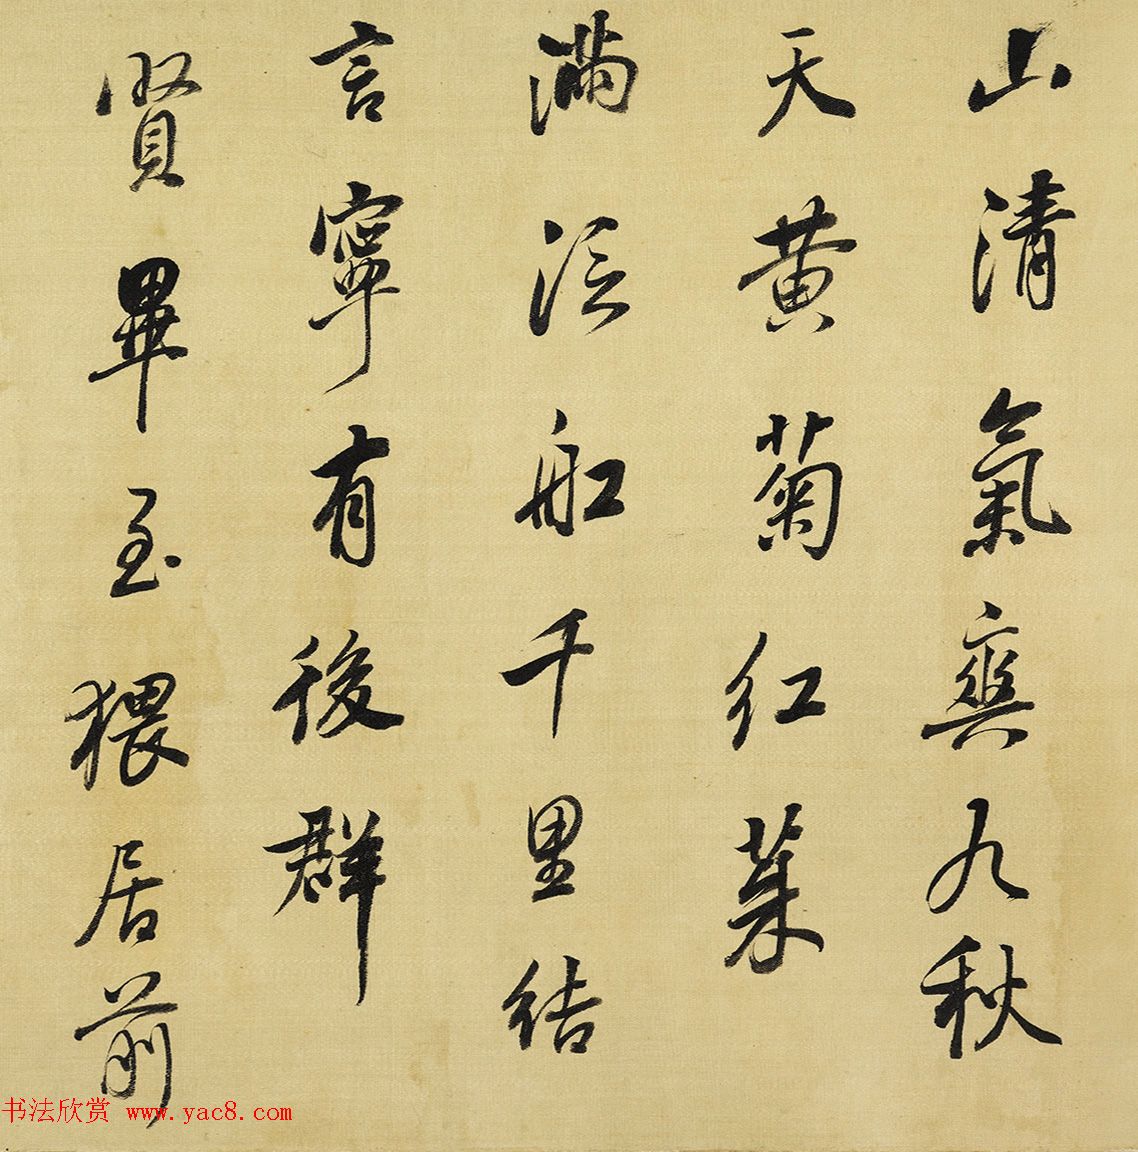 山清氣爽九秋
天黃菊紅茱
滿泛舡千里結
言寧有後群
賢畢至猥居前
书法欣赏 www.yac8.com